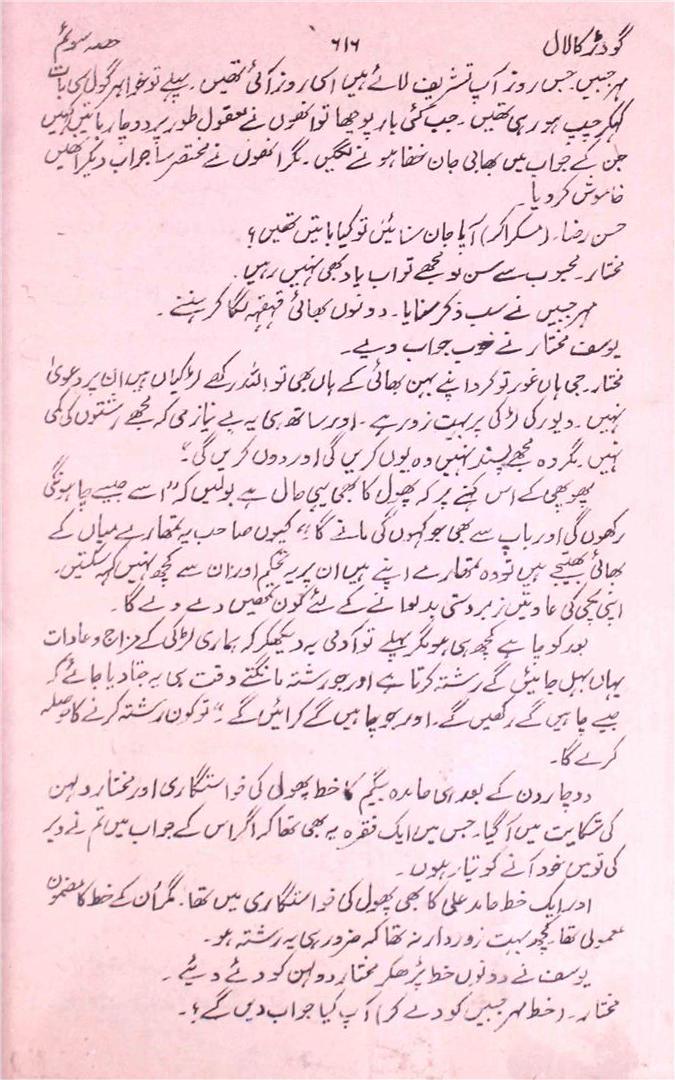 گودڑ کا لال ۶۱۶ حصہ سوئم
مہر جبیں۔ جس روز آپ تشریف لائے ہیں اسی روز آئی تھیں۔ پہلے تو خواہر گول سی بات
کہکر چپ ہو رہی تھیں۔ جب کئی بار پوچھا تو انھوں نے معقول طور پر دو چار باتیں کہیں
جن کے جواب میں بھابی جان خفا ہونے لگیں۔ مگر انھوں نے مختصر سا جواب دیکر انھیں
خاموش کر دیا۔
حسن رضا۔ (مسکرا کر) آپا جان سنائیں تو کیا باتیں تھیں؟
مختار۔ محبوب سے سن لو مجھے تو اب یاد بھی نہیں رہیں۔
مہر جبیں نے سب ذکر سنایا۔ دونوں بھائی قہقہہ لگا کر ہنسے۔
یوسف مختار نے خوب جواب دیے۔
مختار۔ جی ہاں غور تو کرو اپنے بہن بھائی کے ہاں بھی تو اللہ رکھے لڑکیاں ہیں ان پر دعویٰ
نہیں۔ دیور کی لڑکی پر بہت زور ہے۔ اور ساتھ ہی یہ بے نیازی کہ مجھے رشتوں کی کمی
نہیں۔ مگر وہ مجھے پسند نہیں وہ یوں کریں گی اور ووں کریں گی۔"
پھوپھی کے اس کہنے پر کہ پھول کا بھی یہی حال ہے بولیں کہ "اسے جیسے چاہونگی
رکھوں گی اور باپ سے بھی جو کہوں گی مانے گا۔" کیوں صاحب یہ تمھارے میاں کے
بھائی بھتیجے ہیں تو وہ تمھارے اپنے ہیں ان پر یہ تحکم اور ان سے کچھ نہیں کہہ سکتیں۔
اپنی بچی کی عادتیں زبردستی بدلوانے کے لئے کون تمھیں دے دے گا۔
بعد کو چاہے کچھ ہی ہو مگر پہلے تو آدمی یہ دیکھکر کہ ہماری لڑکی کے مزاج و عادات
یہاں بہل جائیں گے رشتہ کرتا ہے اور جو رشتہ مانگتے وقت ہی یہ جتا دیا جائے کہ
جیسے چاہیں گے رکھیں گے۔ اور جو چاہیں گے کرائیں گے۔" تو کون رشتہ کرنے کا حوصلہ
کرے گا۔
دو چار دن کے بعد ہی حامدہ بیگم کا خط پھول کی خواستگاری اور مختار دولہن
کی شکایت میں آ گیا۔ جس میں ایک فقرہ یہ بھی تھا کہ اگر اس کے جواب میں تم نے دیر
کی تو میں خود آنے کو تیار ہوں۔
اور ایک خط حامد علی کا بھی پھول کی خواستگاری میں تھا۔ مگر اُن کے خط کا مضمون
معمولی تھا۔ کچھ بہت زور دار نہ تھا کہ ضرور ہی یہ رشتہ ہو۔
یوسف نے دونوں خط پڑھکر مختار دولہن کو دے دیئے۔
مختار۔ (خط مہر جبیں کو دے کر) آپ کیا جواب دیں گے؟۔